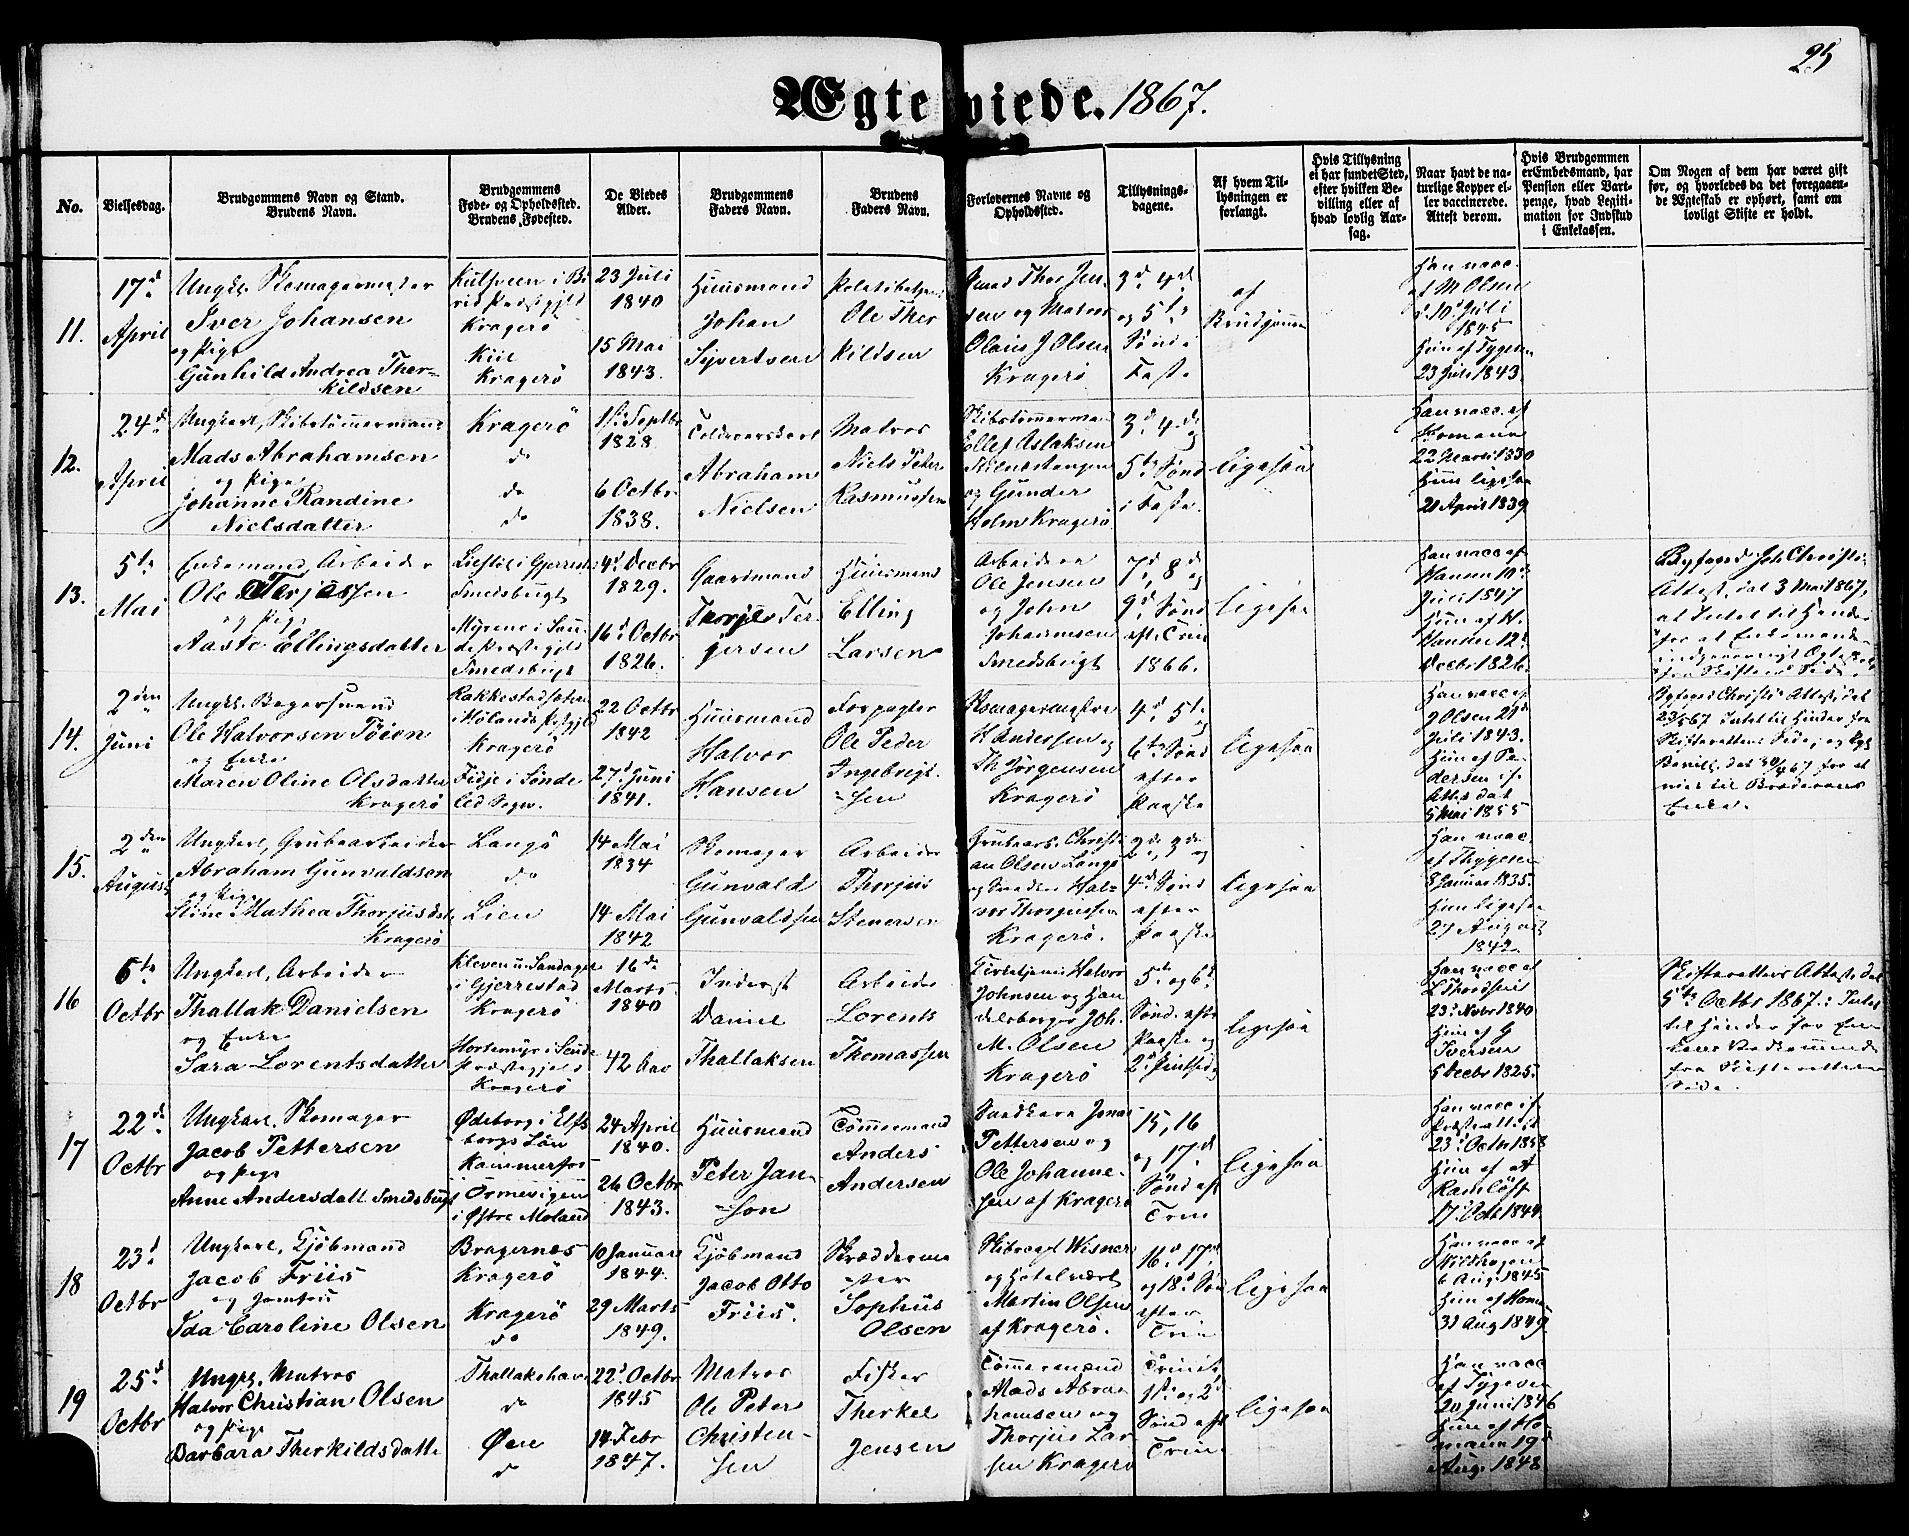 25
Ægteviede. 1867.
No.
Vielsesdag.
Brudgommens Navn og Stand.
Brudens Navn.
Brudgommens
Føde- og Opholdssted.
Brudens Fødested.
De Viedes
Alder.
Brudgommens
Faders Navn.
Brudens
Faders Navn.
Forlovernes Navne og
Opholdssted.
Tillysnings-
dagene.
Af hvem Til-
lysningen er
forlangt.
Hvis Tillysning
ei har fundet Sted,
efter hvilken Be-
villing eller af
hvad lovlig Aar-
sag.
Naar havt de na-
turlige Kopper el-
ler vaccinerede.
Attest derom.
Hvis Brudgommen
er Embedsmand, har
Pension eller Vart-
penge, hvad Legiti-
mation for Indskud
i Enkekassen.
Om Nogen af dem har været gift
før, og hvorledes da det foregaaen-
de Ægteskab er ophørt, samt om
lovligt Skifte er holdt.
11.
17d
April
Ungk. Skomagermester
Iver Johansen
og Pige
Gunhild Andrea Ther-
kildsen
Kragerø
Kiil
Kragerø
23 Juli
1840
15 Mai
1843.
Huusmand
Johan
Syvertsen
Ole Ther
kildsen
Thor Jen
sen og Matros
Olaus J Olsen
Kragerø
3d 4d
og 5te
Sønd i
Faste
af
Brudgommen
Han vacc.
af M Olsen
d. 10d Juli
1845
Hun af Tygesen
23 Juli 1843.
12.
24d
April
Ungkarl, Skibstømmermand
Mads Abrahamsen
og Pige
Johanne Randine
Nielsdatter
Kragerø
do
do
do
1ste Septbr
1828
6 Octbr
1838.
Abraham
Nielsen
Matros
Niels Peter
Rasmussen
Skibstømmermand
Ellef Aslaksen
og Gunder
Holm Kragerø
3d 4de og
5te Sønd
i Faste.
ligesaa
Han vacc. af
Homann
1830
Hun ligesaa
21 April 1839
13.
5te
Mai
Enkemand, Arbeider
Ole Terjesen
og Pige
Aaste Ellingsdatter
Smedsbugt
Smedsbugt
4d Decbr
1829.
16d Octbr
1826.
Gaardmand
Thorje Ter
jersen
Huusmand
Elling
Larsen
Arbeider
Ole Jensen
og John
Johannsen
Smedsbugt
7d, 8d og
9d Sønd
eft. Trin
1866.
ligesaa
Han vacc af
Hansen 10de
Juli 1847
Hun af H.
Hansen 12te
Decbr 1826.
Byfoged Joh. Christie
Attest, dat 3 Mai 1867,
at Intet til Hinder
for at Enkemanden
indgaar nyt Ægteskab
fra Skiftets Side.
14.
2den
Juni
Ungk. Bagersvend
Ole Halvorsen Tøien
og Enke
Maren Oline Olsdatter
Kragerø
Kragerø
22 Octbr
1842
27d Juni
1841.
Huusmand
Halvor
Hansen
Forpagter
Ole Peder
Ingebrigt-
sen
Skomagermestre
H Andersen og
Th Jørgensen
Kragerø
4d, 5te og
6te Sønd
efter
Paaske
ligesaa
Han vacc af
J Olsen 21d
Juli 1843.
Hun af Pe-
dersen if.
Attest dat
5 Mai 1855
Byfoged Christie Attest, dat
23/5 67 Intet til Hinder fra
Skifterettens Side, og Kgl
Bevill. dat 30/4 67 for at
vies til Broderens
Enke.
15.
2den
August
Ungkarl, Grubearbeider
Abraham Gunvaldsen
og Pige
Stine Mathea Thorjusdt
Kragerø
Langø
do
Lien
14 Mai
1834
14 Mai
1842
Skomager
Gunvald
Gunvaldsen
Arbeider
Thorjus
Stenersen
Grubearb. Christi-
an Olsen Langø
Hal-
vor Thorgusen
Kragerø.
2de, 3de og
4de Sønd
efter
Paaske
ligesaa
Han vacc.
af Thygesen
8 Januar 1835.
Hun ligesaa
27 August
1842.
16
6te
Octbr
Ungkarl, Arbeider
Thallak Danielsen
og Enke
Sara Lorentsdatter
Kleven u. Sandager
i Gjerrestad
Kragerø
Kragerø
16de
Marts
1840
42 Aar
Inderst
Daniel
Thallaksen
Arbeider
Lorents
Thomassen
Halvor
Johnsen og Han
delsborger Joh.
M. Olsen
Kragerø
5te og 6te
Sønd. efter
Paaske og
2d Pintsedag
ligesaa
Han vacc af
L Thordsen
23d Novbr 1840
Hun af G
Iversen
5 Decbr 1825.
Skifterettens Attest, dat
5te Octbr 1867: Intet
til Hinder for En-
fra Skifterettens
Side.
17
22de
Octbr
Ungkarl, Skomager
Jacob Pettersen
og Pige
Anne Andersdatt Smedsbugt
Ødeborg i Elfs
borgs Län
Ormevigen
i Østre Moland
24 April
1840.
26 Octbr
1843.
Huusmand
Peter Jan-
son
Tømmermand
Anders
Andersen
Jonas
Pettersen og
Ole Johanne-
sen af Kragerø
15, 16
og 17d
Sønd eft
Trin
ligesaa
Han vacc if.
Præsteattest
23d Octbr 1858
Hun af A
Ramløff
17d Octb 1844
18
23d
Octbr
Ungkarl, Kjøbmand
Jacob Friis
og Jomfru
Ida Caroline Olsen
Bragernes
Kragerø
Kragerø
do
10 Januar
1844.
29 Marts
1849.
Kjøbmand
Jacob Otto
Friis.
Skrædderme-
ster
Sophus
Olsen
Wisner
og Hotelvært
Martin Olsen
af Kragerø.
16d, 17d
og 18d Sønd
efter
Trin
ligesaa
Han vacc af
Wildhagen
6 Aug 1845
Hun af Homan
31 Aug 1849.
19
25d
Octbr
Ungk. Matros
Halvor Christian Olsen
og Pige
Barbara Therkildsdatte
Thallakshavn
do
Øen
do
22d Octbr
1845
14 Febr
1847.
Matros
Ole Peter
Christen-
sen
Fisker
Therkel
Jensen
Tømmermand
Mads Abra-
hamsen og
Thorjus Lar
sen Kragerø
Trinit,
1ste og 2d
Sønd eft
Trin
ligesaa
Han vacc
af Tygesen
20 Juni 1846
Hun af Ho
mann 19d
Aug. 1848